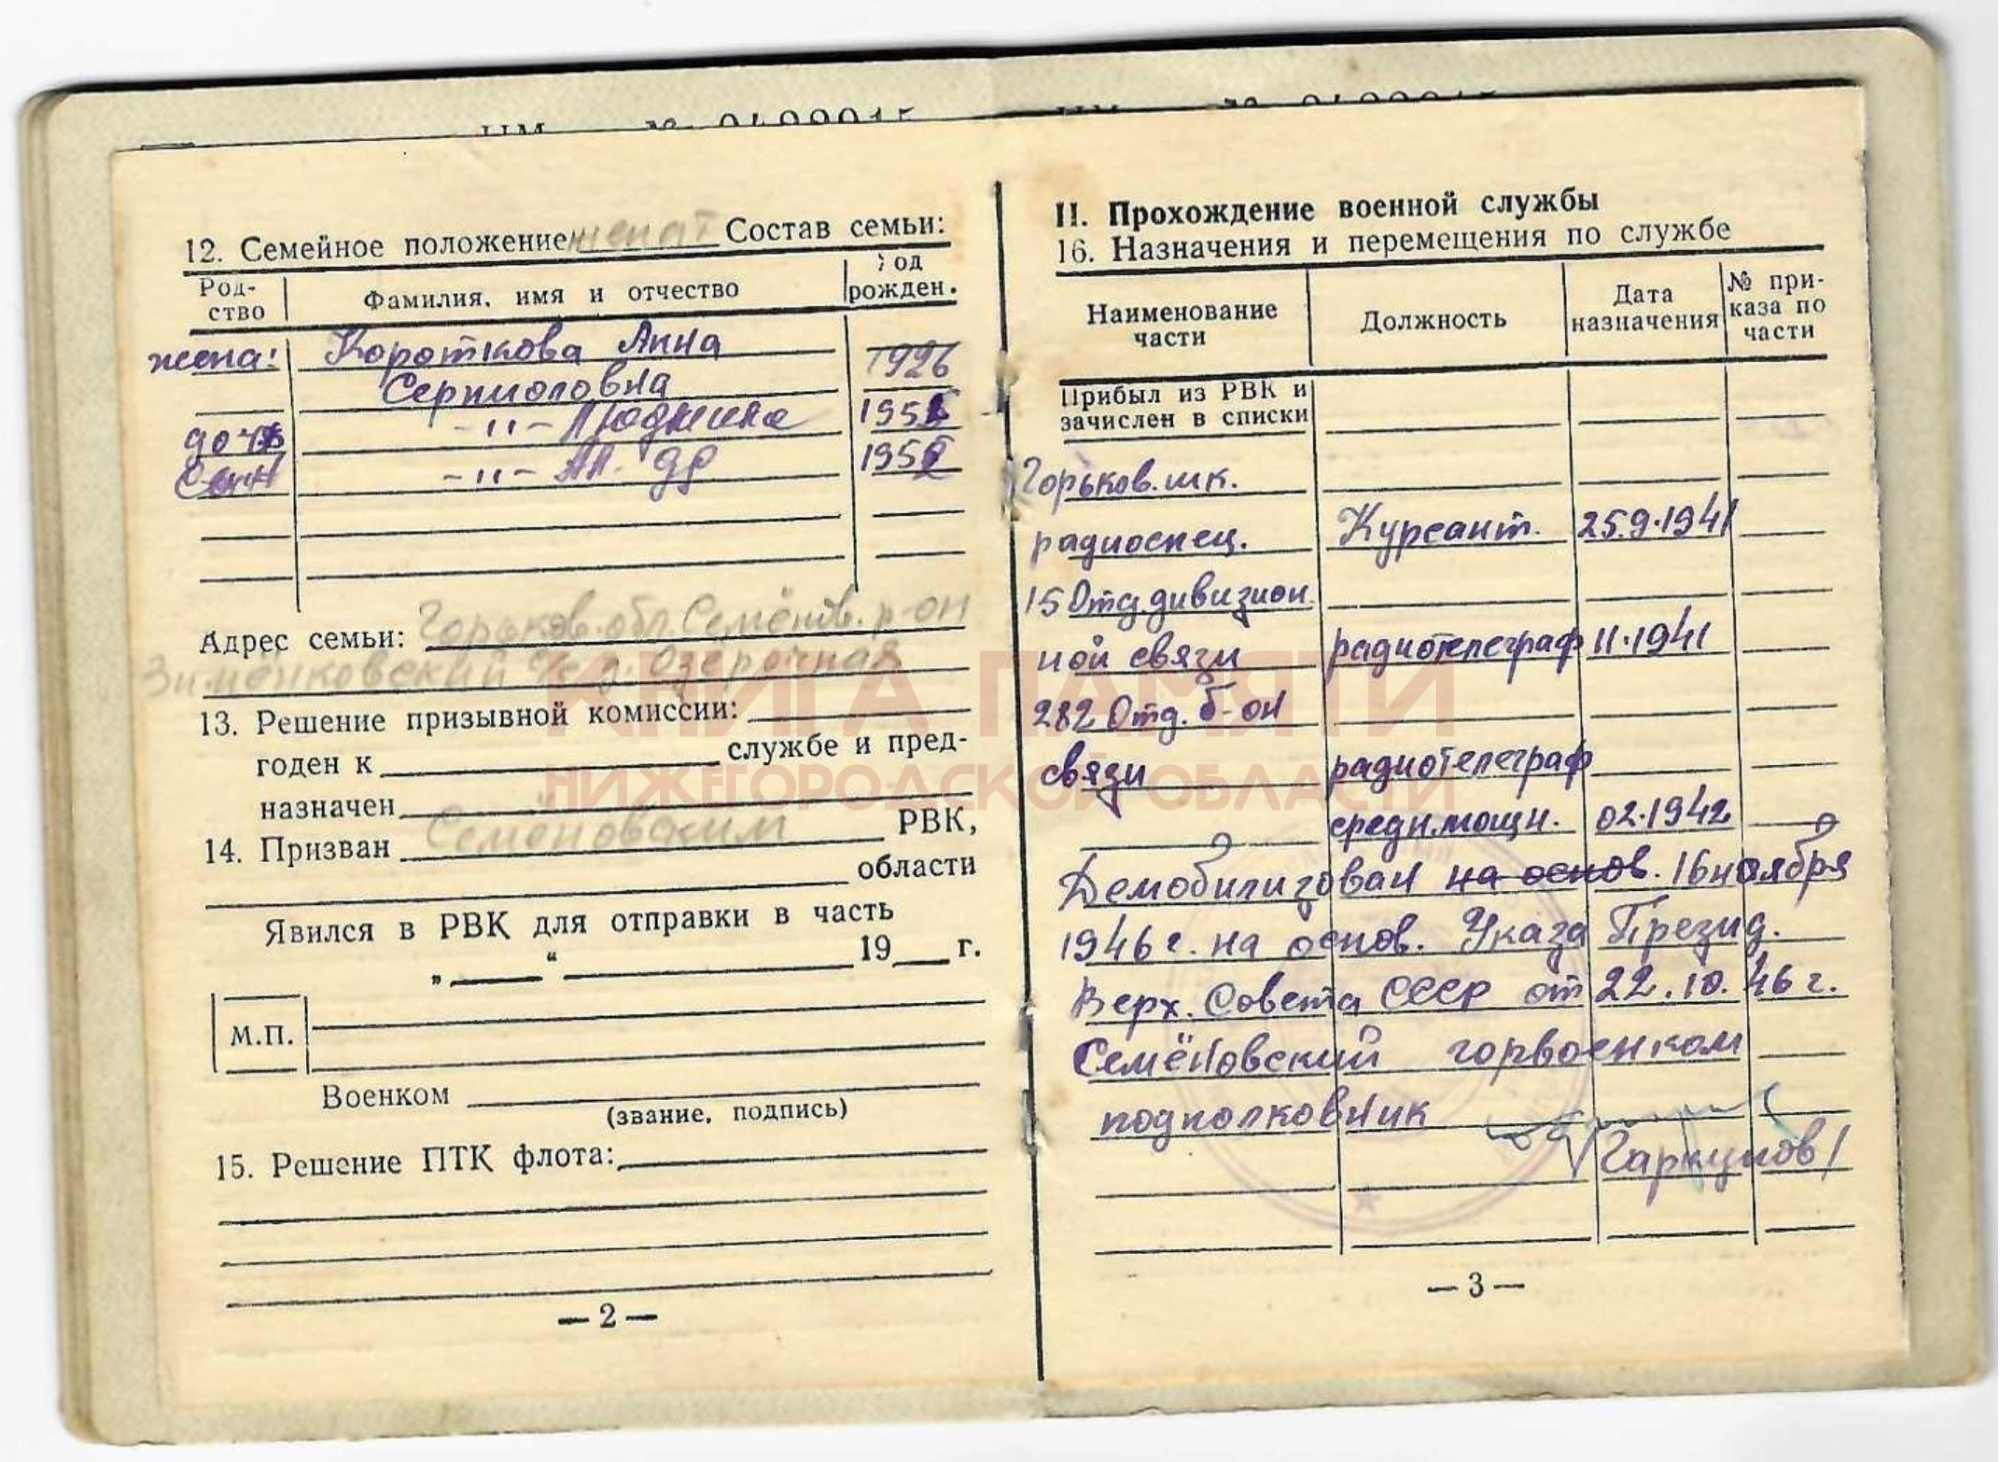 12. Семейное положение женат Состав семьи:
Род-
ство
Фамилия, имя и отчество
Год
рожден.
жена: Короткова Анна 1926
Серпионовна
дочь -"- Людмила 195
сын -"- 195
Адрес семьи: Горьков. обл. Семёнов. р-он
Зименковский Озерочная
13. Решение призывной комиссии:
годен к службе и пред-
назначен
14. Призван Семёновским РВК,
области
Явился в РВК для отправки в часть
„ “ 19 г.
М.П.
Военком
(звание, подпись)
15. Решение ПТК флота:
— 2 —
II. Прохождение военной службы
16. Назначения и перемещения по службе
Наименование
части
Должность
Дата
назначения
№ при-
каза по
части
Прибыл из РВК и
зачислен в списки
Горьков. шк.
радиоспец. Курсант. 25.9.1941
15 Отд. дивизион
ной связи радиотелеграф 11.1941
282 Отд. б-он
связи радиотелеграф
средн. мощн. 02.1942
Демобилизован на основ. 16 ноября
1946 г. на основ. Указа Презид.
Верх. Совета СССР от 22.10.46 г.
Семёновский горвоенком
подполковник
/Гаркунов/
— 3 —
КНИГА ПАМЯТИ
НИЖЕГОРОДСКОЙ ОБЛАСТИ